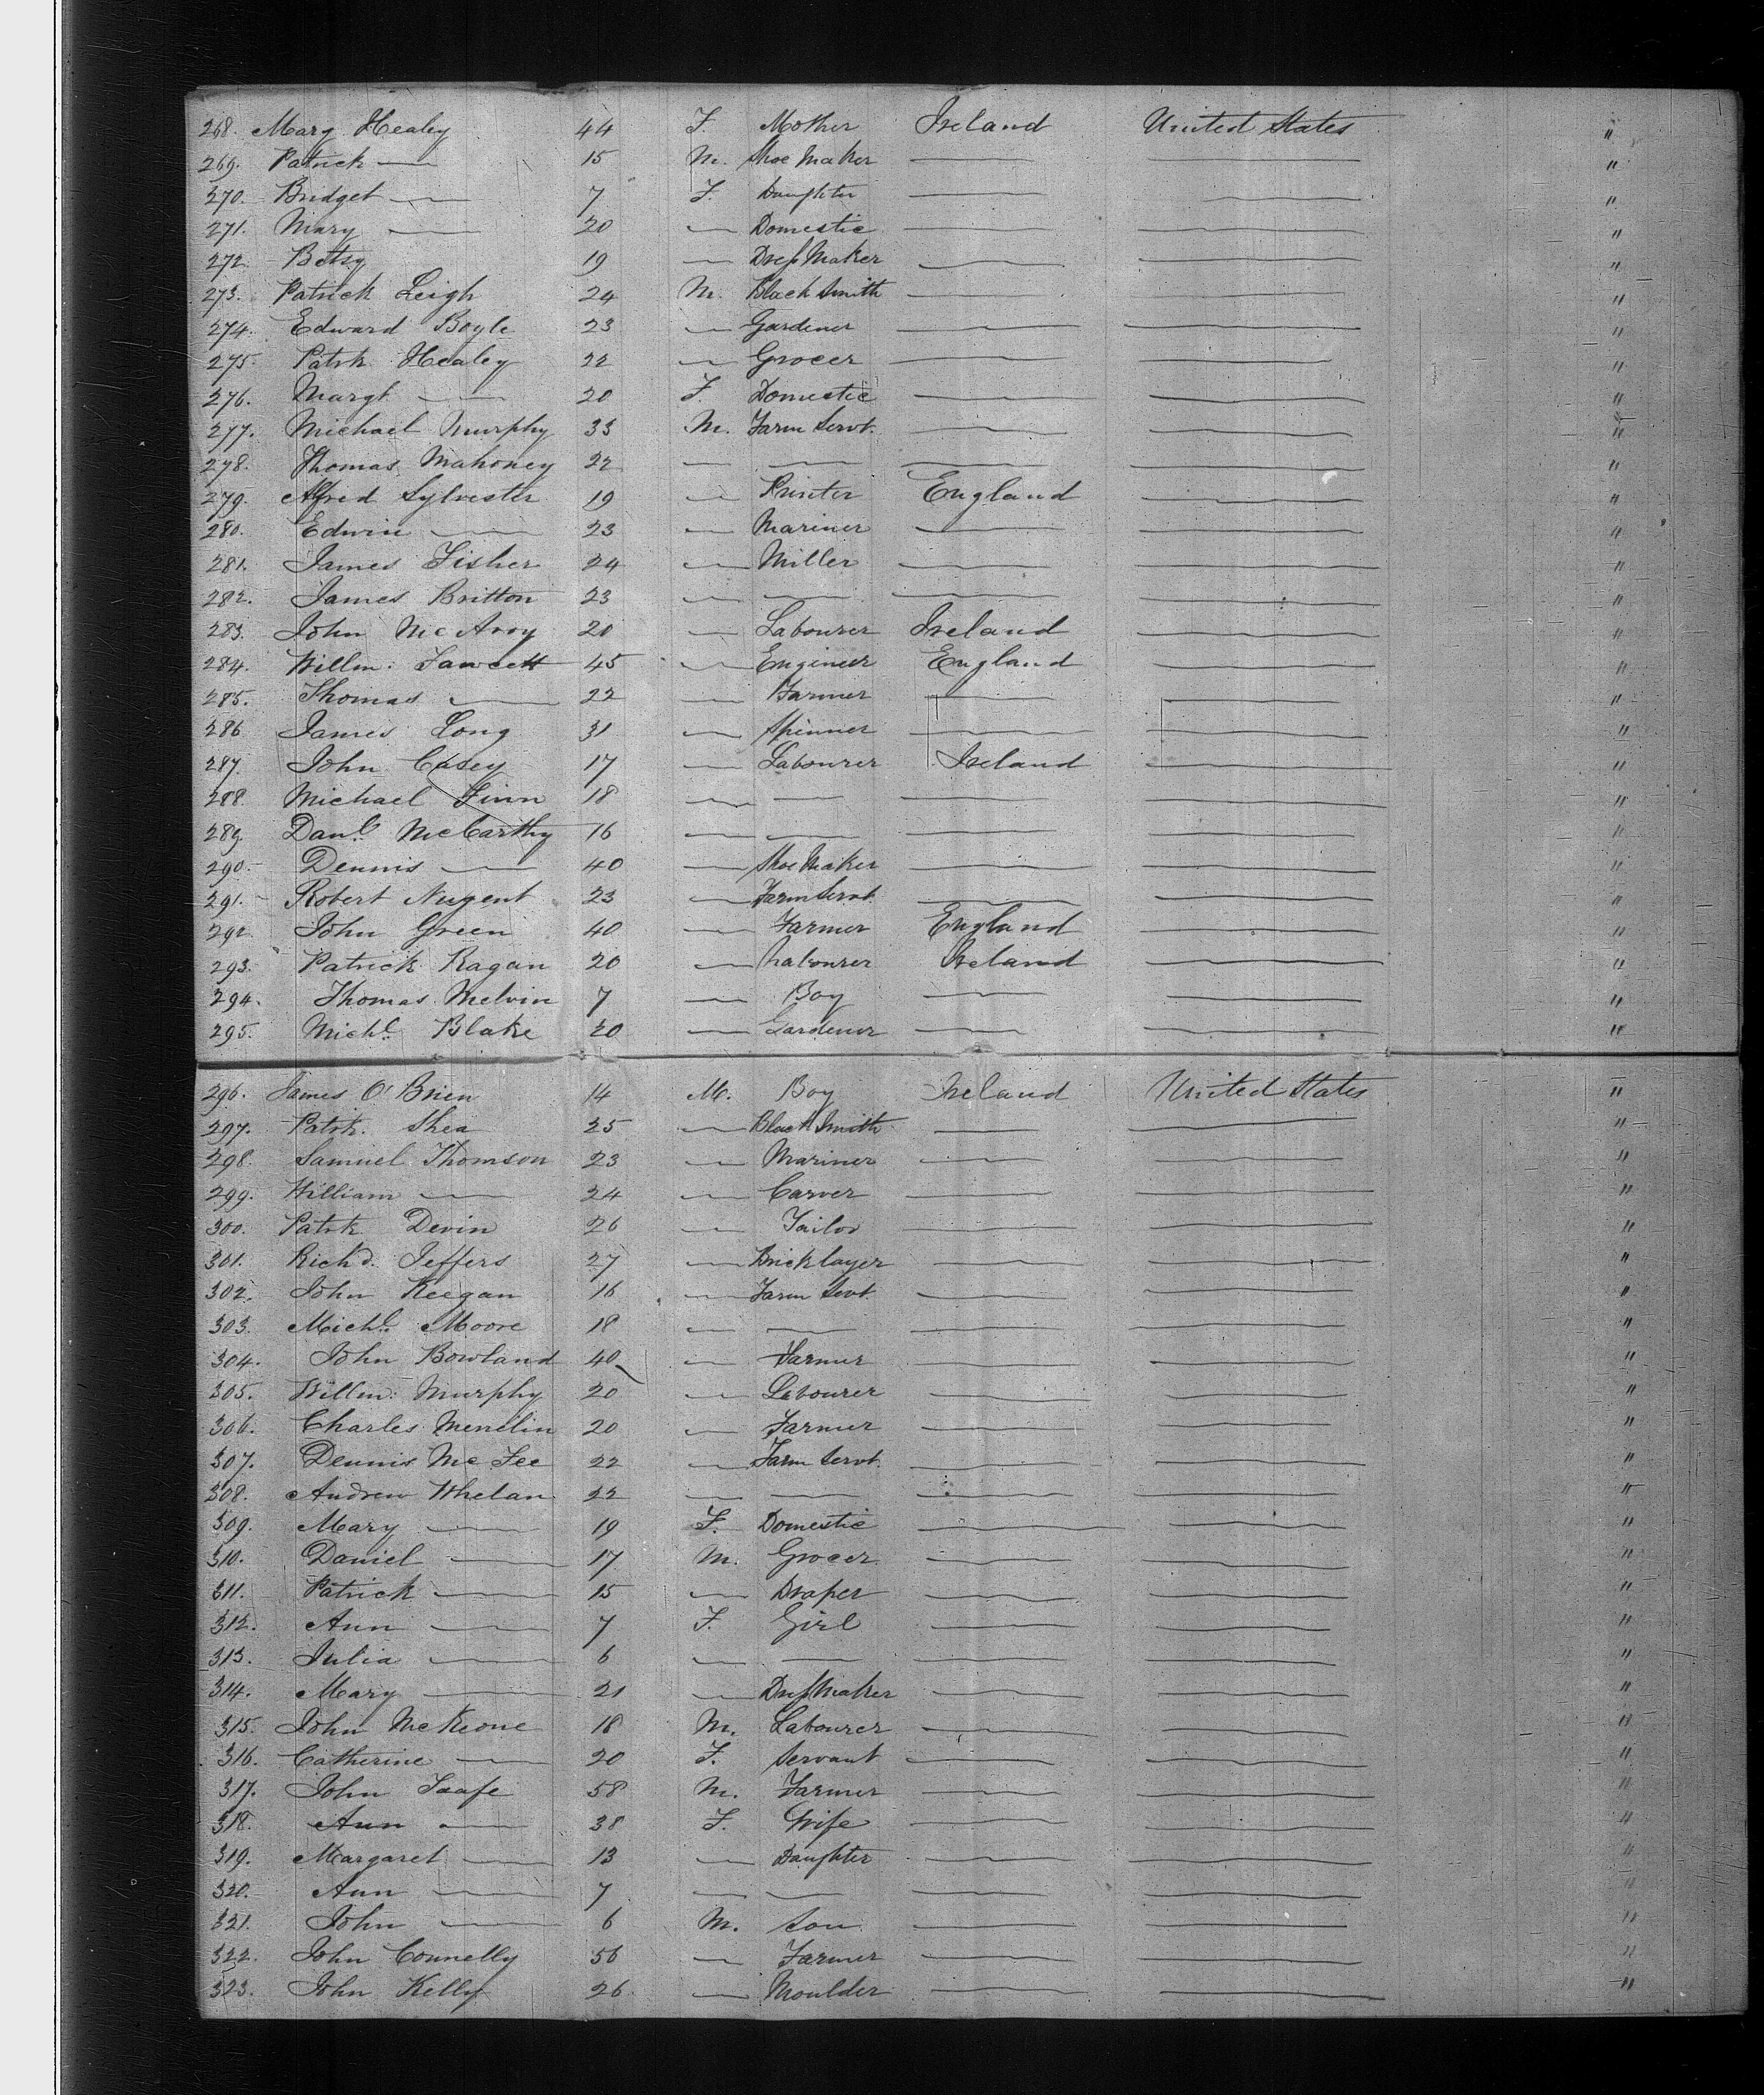 268. Mary Healey 44 F. Mother Ireland United States "
269. Patrick — 15 M. Shoe Maker — — "
270. Bridget — 7 F. Daughter — — "
271. Mary — 20 — Domestic — — "
272. Betsy 19 — Dress Maker — — "
273. Patrick Leigh 24 M. Black Smith — — "
274. Edward Boyle 23 — Gardener — — "
275. Patrk Healey 22 — Grocer — — "
276. Margt — 20 F. Domestic — — "
277. Michael Murphy 33 M. Farm Servt. — — "
278. Thomas Mahoney 22 — — — — "
279. Alfred Sylvester 19 — Printer England — "
280. Edwin — 23 — Mariner — — "
281. James Fisher 24 — Miller — — "
282. James Britton 23 — — — — "
283. John McAvoy 20 — Labourer Ireland — "
284. Willm: Fawcett 45 — Engineer England — "
285. Thomas — 22 — Farmer — — "
286 James Long 31 — Spinner — — "
287. John Casey 17 — Labourer Ireland — "
288. Michael Finn 18 — — — — "
289. Danl. McCarthy 16 — — — — "
290. Dennis — 40 — Shoe Maker — — "
291. Robert Nugent 23 — Farm Servt. — — "
292. John Green 40 — Farmer England — "
293. Patrick Ragan 20 — Labourer Ireland — "
294. Thomas Melvin 7 — Boy — — "
295. Michl. Blake 20 — Gardener — — "
296. James O'Brien 14 M. Boy Ireland United States "
297. Patrk. Shea 25 — Black Smith — — "
298. Samuel Thomson 23 — Mariner — — "
299. William — 24 — Carver — — "
300. Patrk Devin 26 — Tailor — — "
301. Richd. Jeffers 27 — Bricklayer — — "
302. John Keegan 16 — Farm Servt. — — "
303. Michl. Moore 18 — — — — "
304. John Bowland 40 — Farmer — — "
305. Willm: Murphy 20 — Labourer — — "
306. Charles 20 — Farmer — — "
307. Dennis McFee 22 — Farm Servt. — — "
308. Andrew Whelan 22 — — — — "
309. Mary — 19 F. Domestic — — "
310. Daniel — 17 M. Grocer — — "
311. Patrick — 15 — Draper — — "
312. Ann — 7 F. Girl — — "
313. Julia — 6 — — — — "
314. Mary — 21 — Dress Maker — — "
315. John McKeone 18 M. Labourer — — "
316. Catherine — 20 F. Servant — — "
317. John Taafe 58 M. Farmer — — "
318. Ann — 38 F. Wife — — "
319. Margaret — 13 — Daughter — — "
320. Ann — 7 — — — — "
321. John — 6 M. Son — — "
322. John Connelly 56 — Farmer — — "
323. John Kelly 26 — Moulder — — "